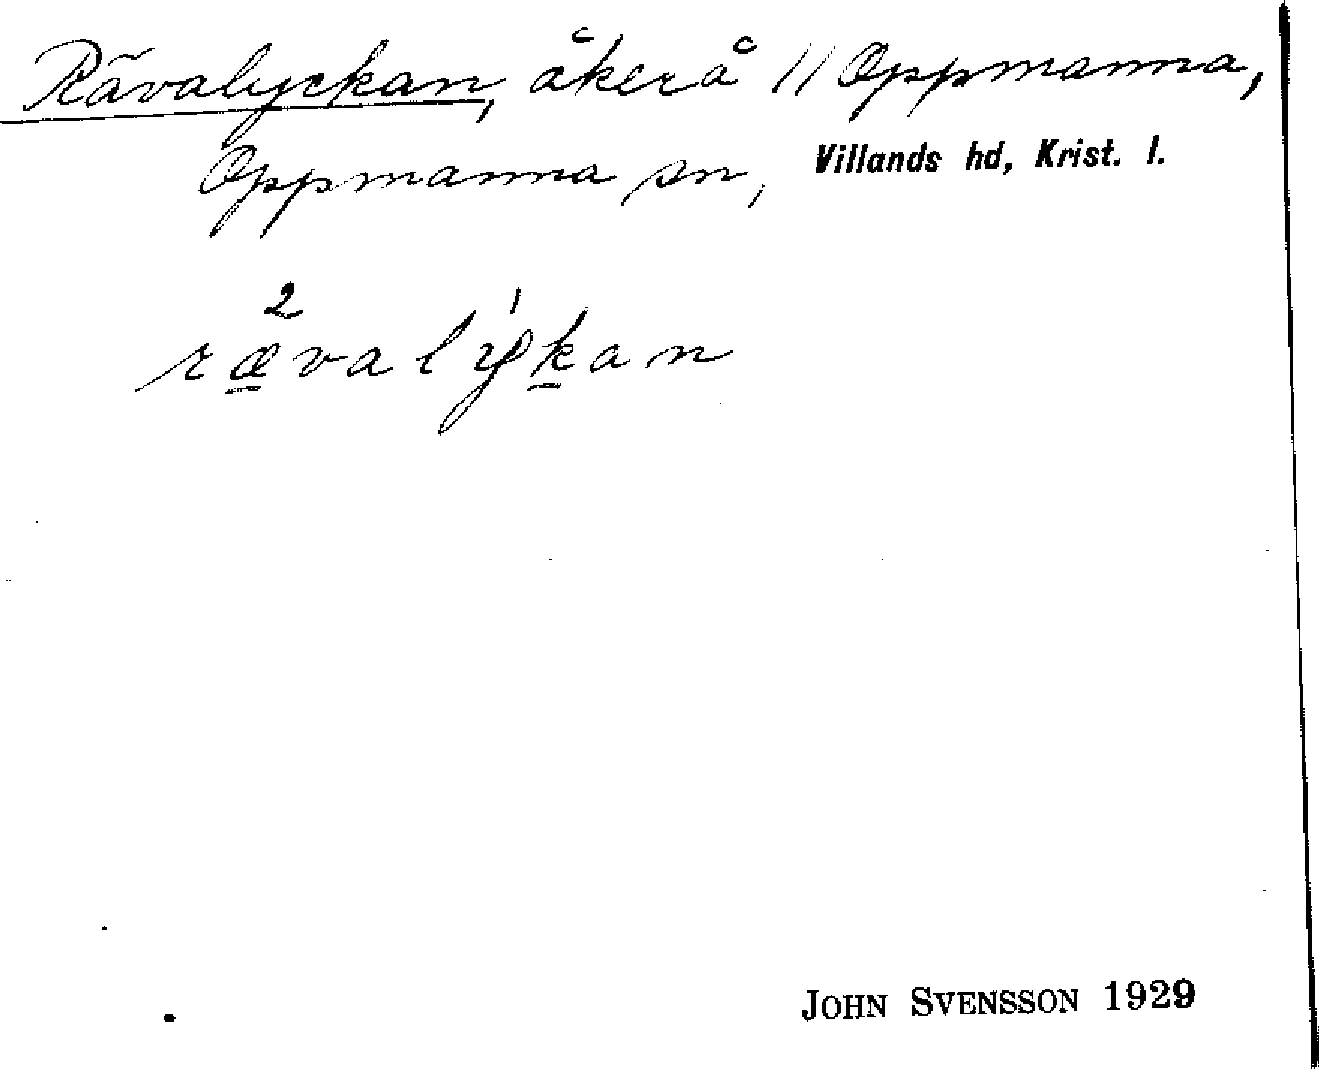 Rävalyckan, åker å 11 Oppmanna,
Oppmanna sn, Villands hd, Krist. l.
2 1
rævalykan
JOHN SVENSSON 1929